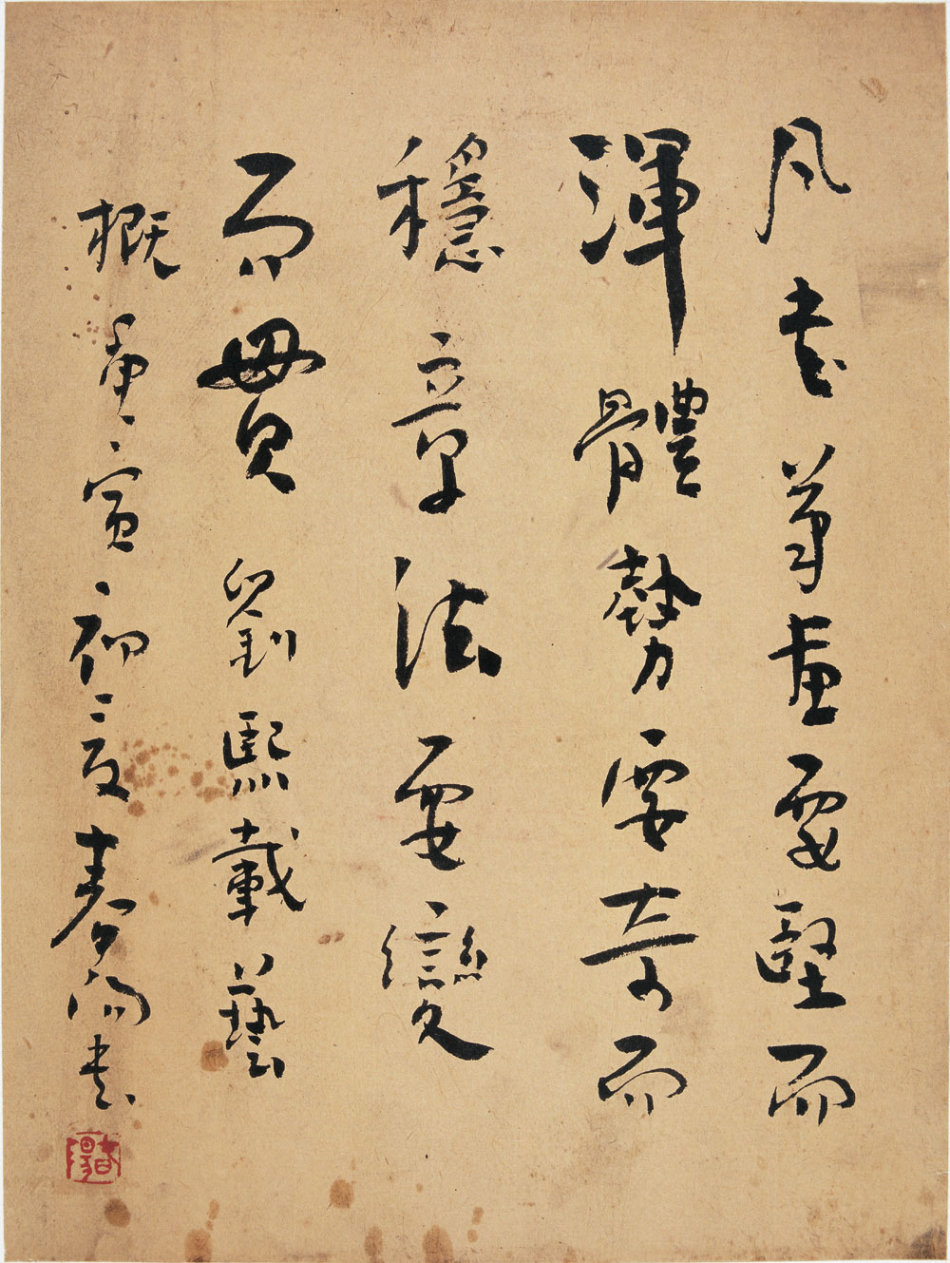 凡書筆畫要堅而
渾體勢要奇而
穩章法要變
而貫劉熙載藝
概庚寅初夏春陽書
春陽